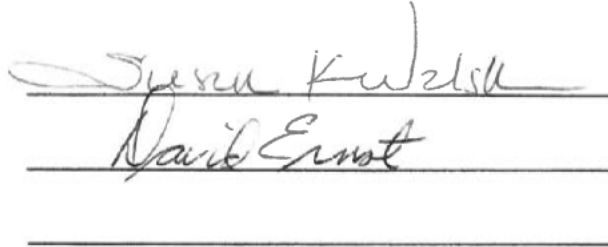 Susan K Walsh
David Ernst